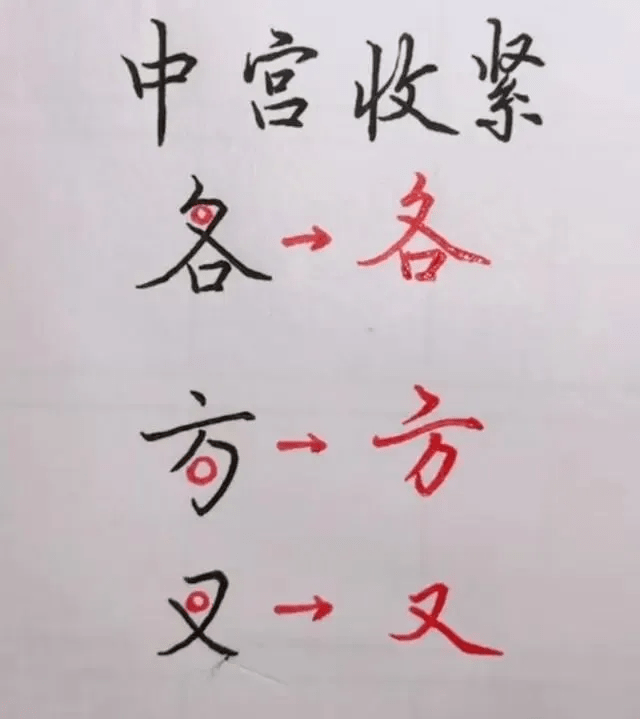 中宫收紧
各→各
方→方
又→又